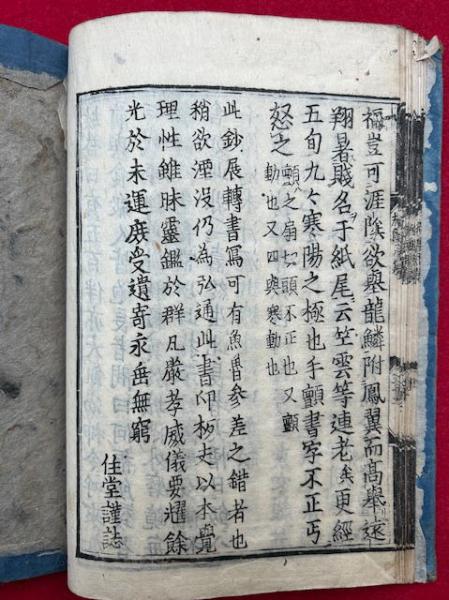 福豈可涯俟欲舉龍鱗附鳳翼而高舉遠
翔暑賤名于紙尾云笠雲等連老矣更經
五旬九々寒陽之極也手顫書字不正丐
怒之 顫之扇切頭不正也又顫
動也又四與寒動也
此鈔展轉書寫可有魚魯參差之錯者也
稍欲湮没仍為弘通此書印板夫以本覺
理性雖昧靈鑑於群凡嚴孝威儀要耀餘
光於未運庶受遺寄永岳無窮
住堂謹誌